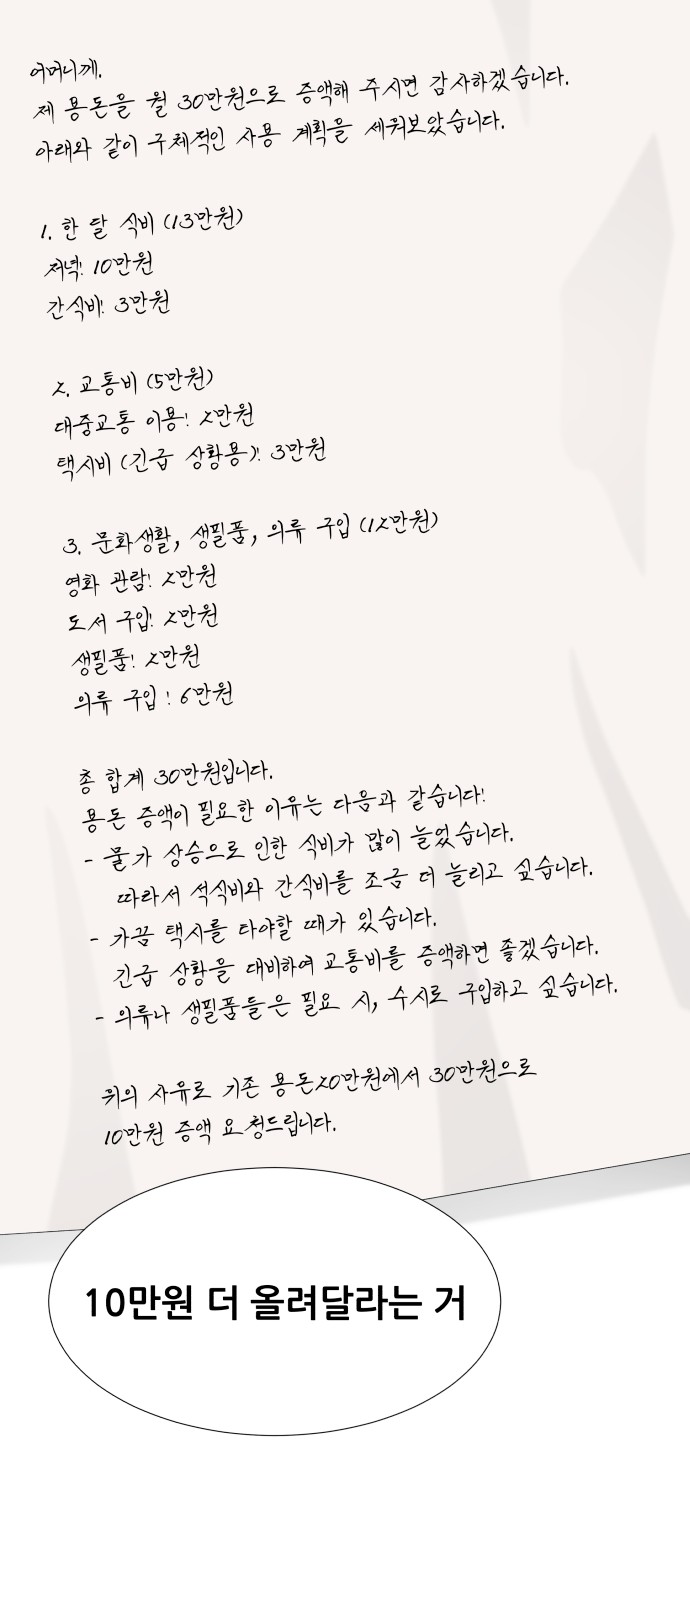 어머니께.
제 용돈을 월 30만원으로 증액해 주시면 감사하겠습니다.
아래와 같이 구체적인 사용 계획을 세워보았습니다.
1. 한 달 식비 (13만원)
저녁: 10만원
간식비: 3만원
2. 교통비 (5만원)
대중교통 이용: 2만원
택시비 (긴급 상황용): 3만원
3. 문화생활, 생필품, 의류 구입 (12만원)
영화 관람: 2만원
도서 구입: 2만원
생필품: 2만원
의류 구입 : 6만원
총 합계 30만원입니다.
용돈 증액이 필요한 이유는 다음과 같습니다:
- 물가 상승으로 인한 식비가 많이 늘었습니다.
따라서 석식비와 간식비를 조금 더 늘리고 싶습니다.
- 가끔 택시를 타야할 때가 있습니다.
긴급 상황을 대비하여 교통비를 증액하면 좋겠습니다.
- 의류나 생필품들은 필요 시, 수시로 구입하고 싶습니다.
위의 사유로 기존 용돈20만원에서 30만원으로
10만원 증액 요청드립니다.
10만원 더 올려달라는 거